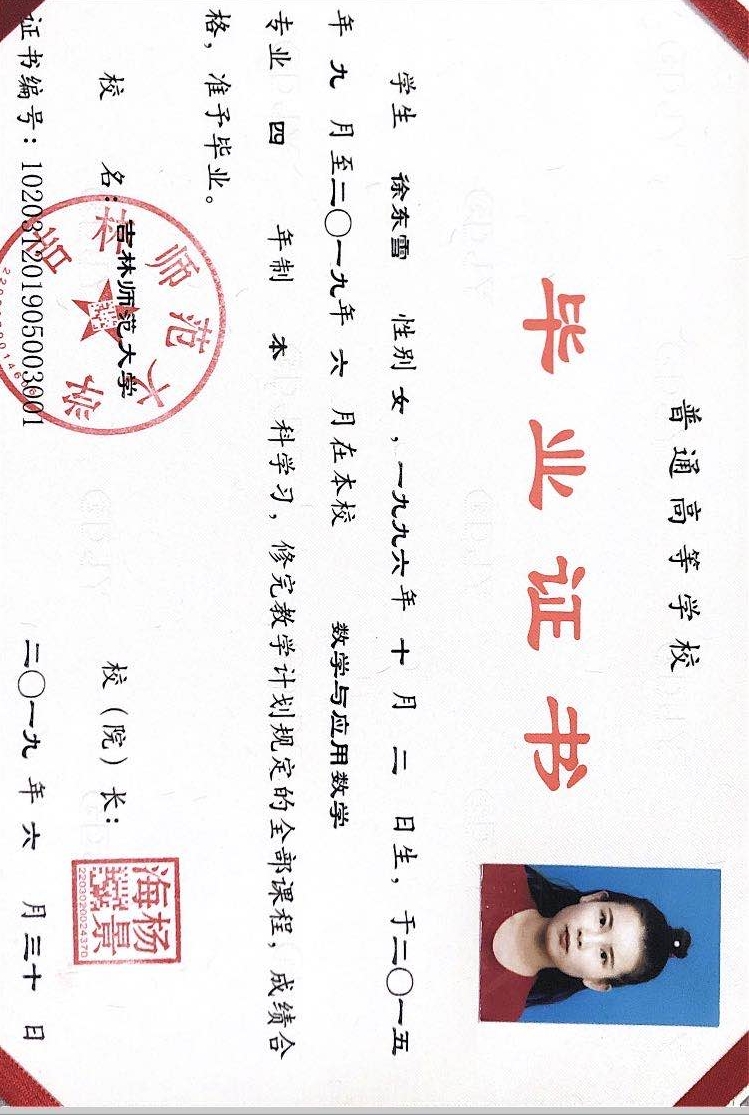 普通高等学校
毕业证书
学生 徐东雪 性别 女，一九九六年 十 月 二 日生，于二〇一五
年 九 月至二〇一九年 六 月在本校 数学与应用数学
专业 四 年制 本 科学习，修完教学计划规定的全部课程，成绩合
格，准予毕业。
校 名：吉林师范大学 校（院）长：
吉林师范大学
杨景海
2203020024370
证书编号：102031201905003001 二〇一九 年 六 月三十 日